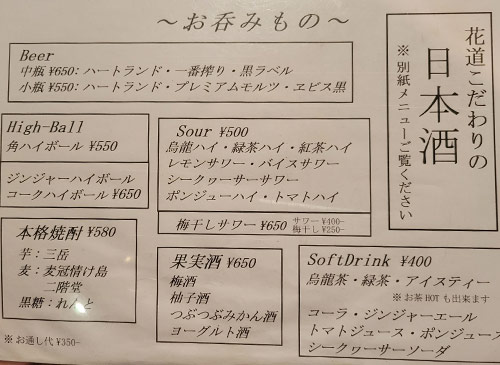 ～お呑みもの～
花道こだわりの
日本酒
※別紙メニューご覧ください
Beer
中瓶 ¥650：ハートランド・一番搾り・黒ラベル
小瓶 ¥550：ハートランド・プレミアムモルツ・ヱビス黒
High-Ball
角ハイボール ¥550
ジンジャーハイボール
コークハイボール ¥650
Sour ¥500
烏龍ハイ・緑茶ハイ・紅茶ハイ
レモンサワー・バイスサワー
シークヮーサーサワー
ポンジューハイ・トマトハイ
梅干しサワー ¥650 サワー¥400-
梅干し¥250-
本格焼酎 ¥580
芋：三岳
麦：麦冠情け島
二階堂
黒糖：れんと
果実酒 ¥650
梅酒
柚子酒
つぶつぶみかん酒
ヨーグルト酒
SoftDrink ¥400
烏龍茶・緑茶・アイスティー
※お茶 HOT も出来ます
コーラ・ジンジャーエール
トマトジュース・ポンジュース
シークヮーサーソーダ
※お通し代 ¥350-